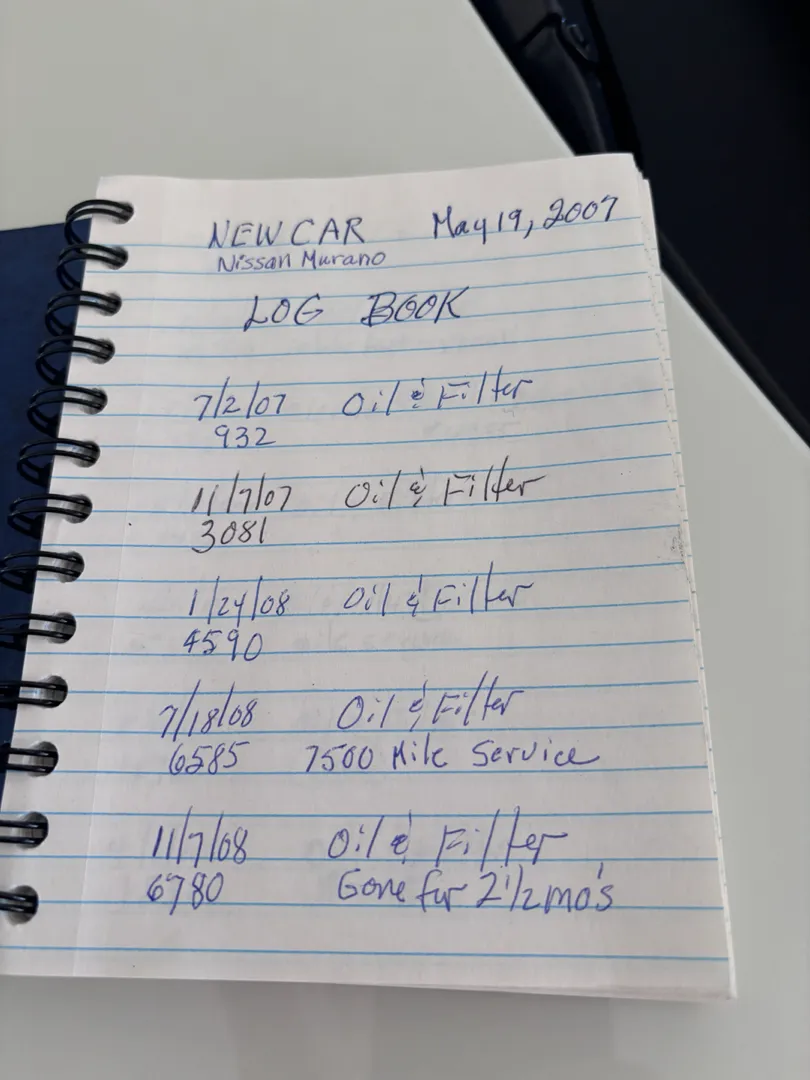 NEW CAR May 19, 2007
Nissan Murano
LOG BOOK
7/2/07 Oil & Filter
932
11/7/07 Oil & Filter
3081
1/24/08 Oil & Filter
4590
7/18/08 Oil & Filter
6585 7500 Mile Service
11/7/08 Oil & Filter
6780 Gone for 2 1/2 mo's